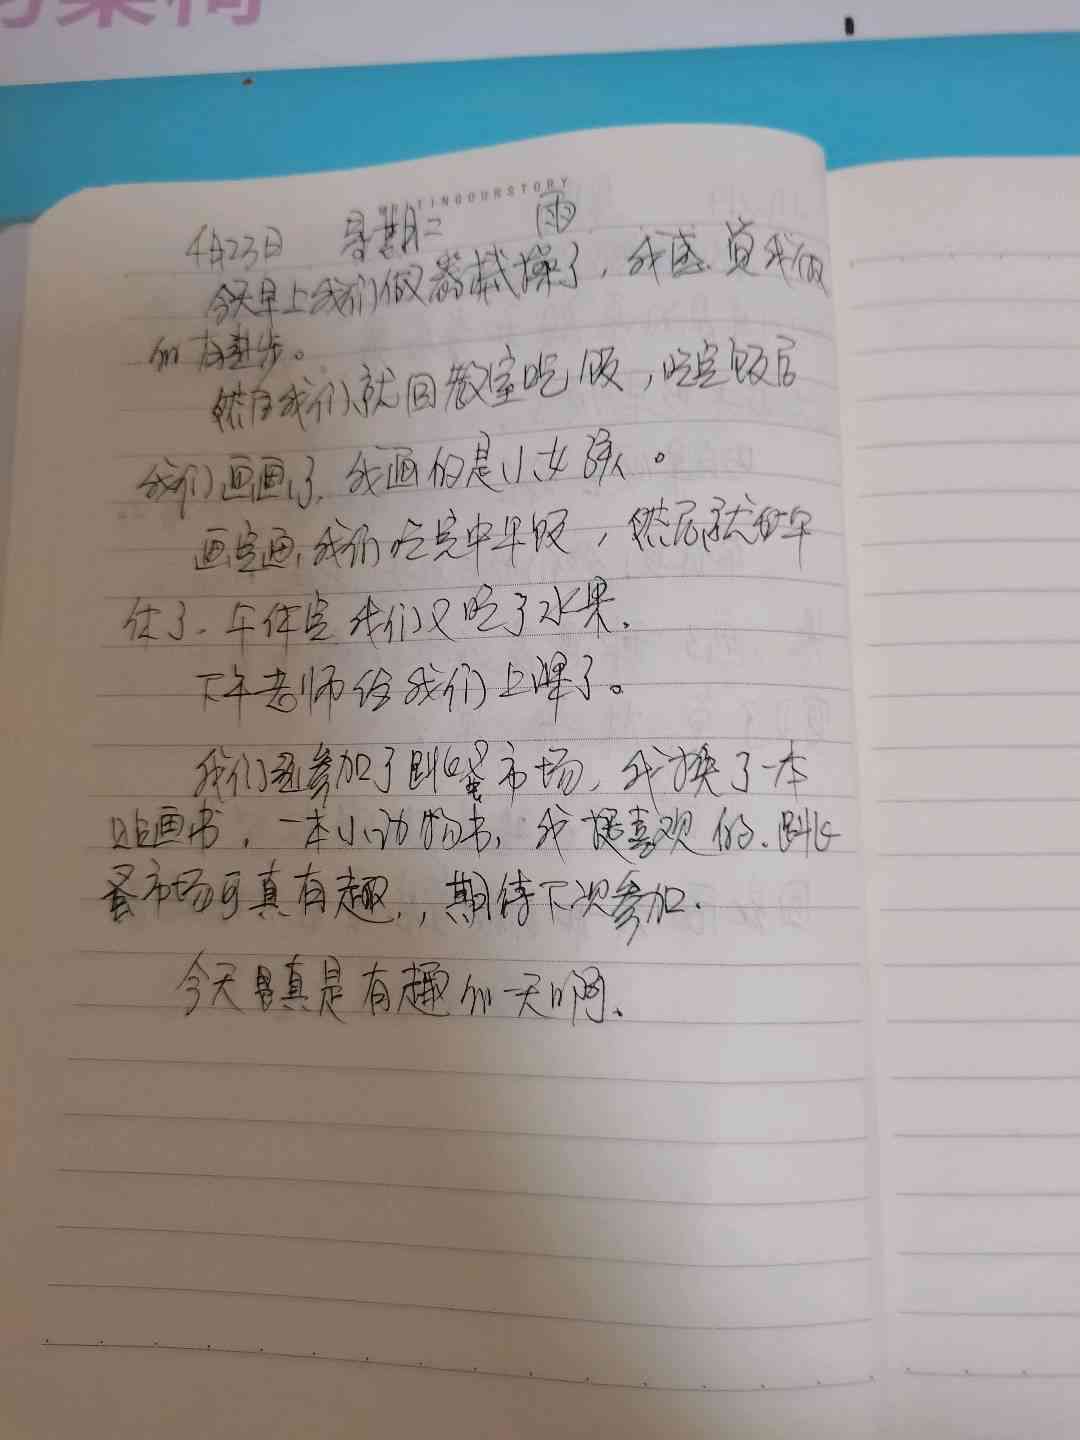 的架构
WRITINGOURSTORY
4月23日 星期二 雨
今天早上我们做器械操了，我感觉我做
的有进步。
然后我们就回教室吃饭，吃完饭后
我们画画了，我画的是小女孩。
画完画，我们吃完中午饭，然后就午
休了。午休完我们又吃了水果。
下午老师给我们上课了。
我们还参加了跳蚤市场，我换了一本
贴画书，一本小动物书，我挺喜欢的，跳
蚤市场可真有趣，，期待下次参加。
今天真是有趣的一天啊。